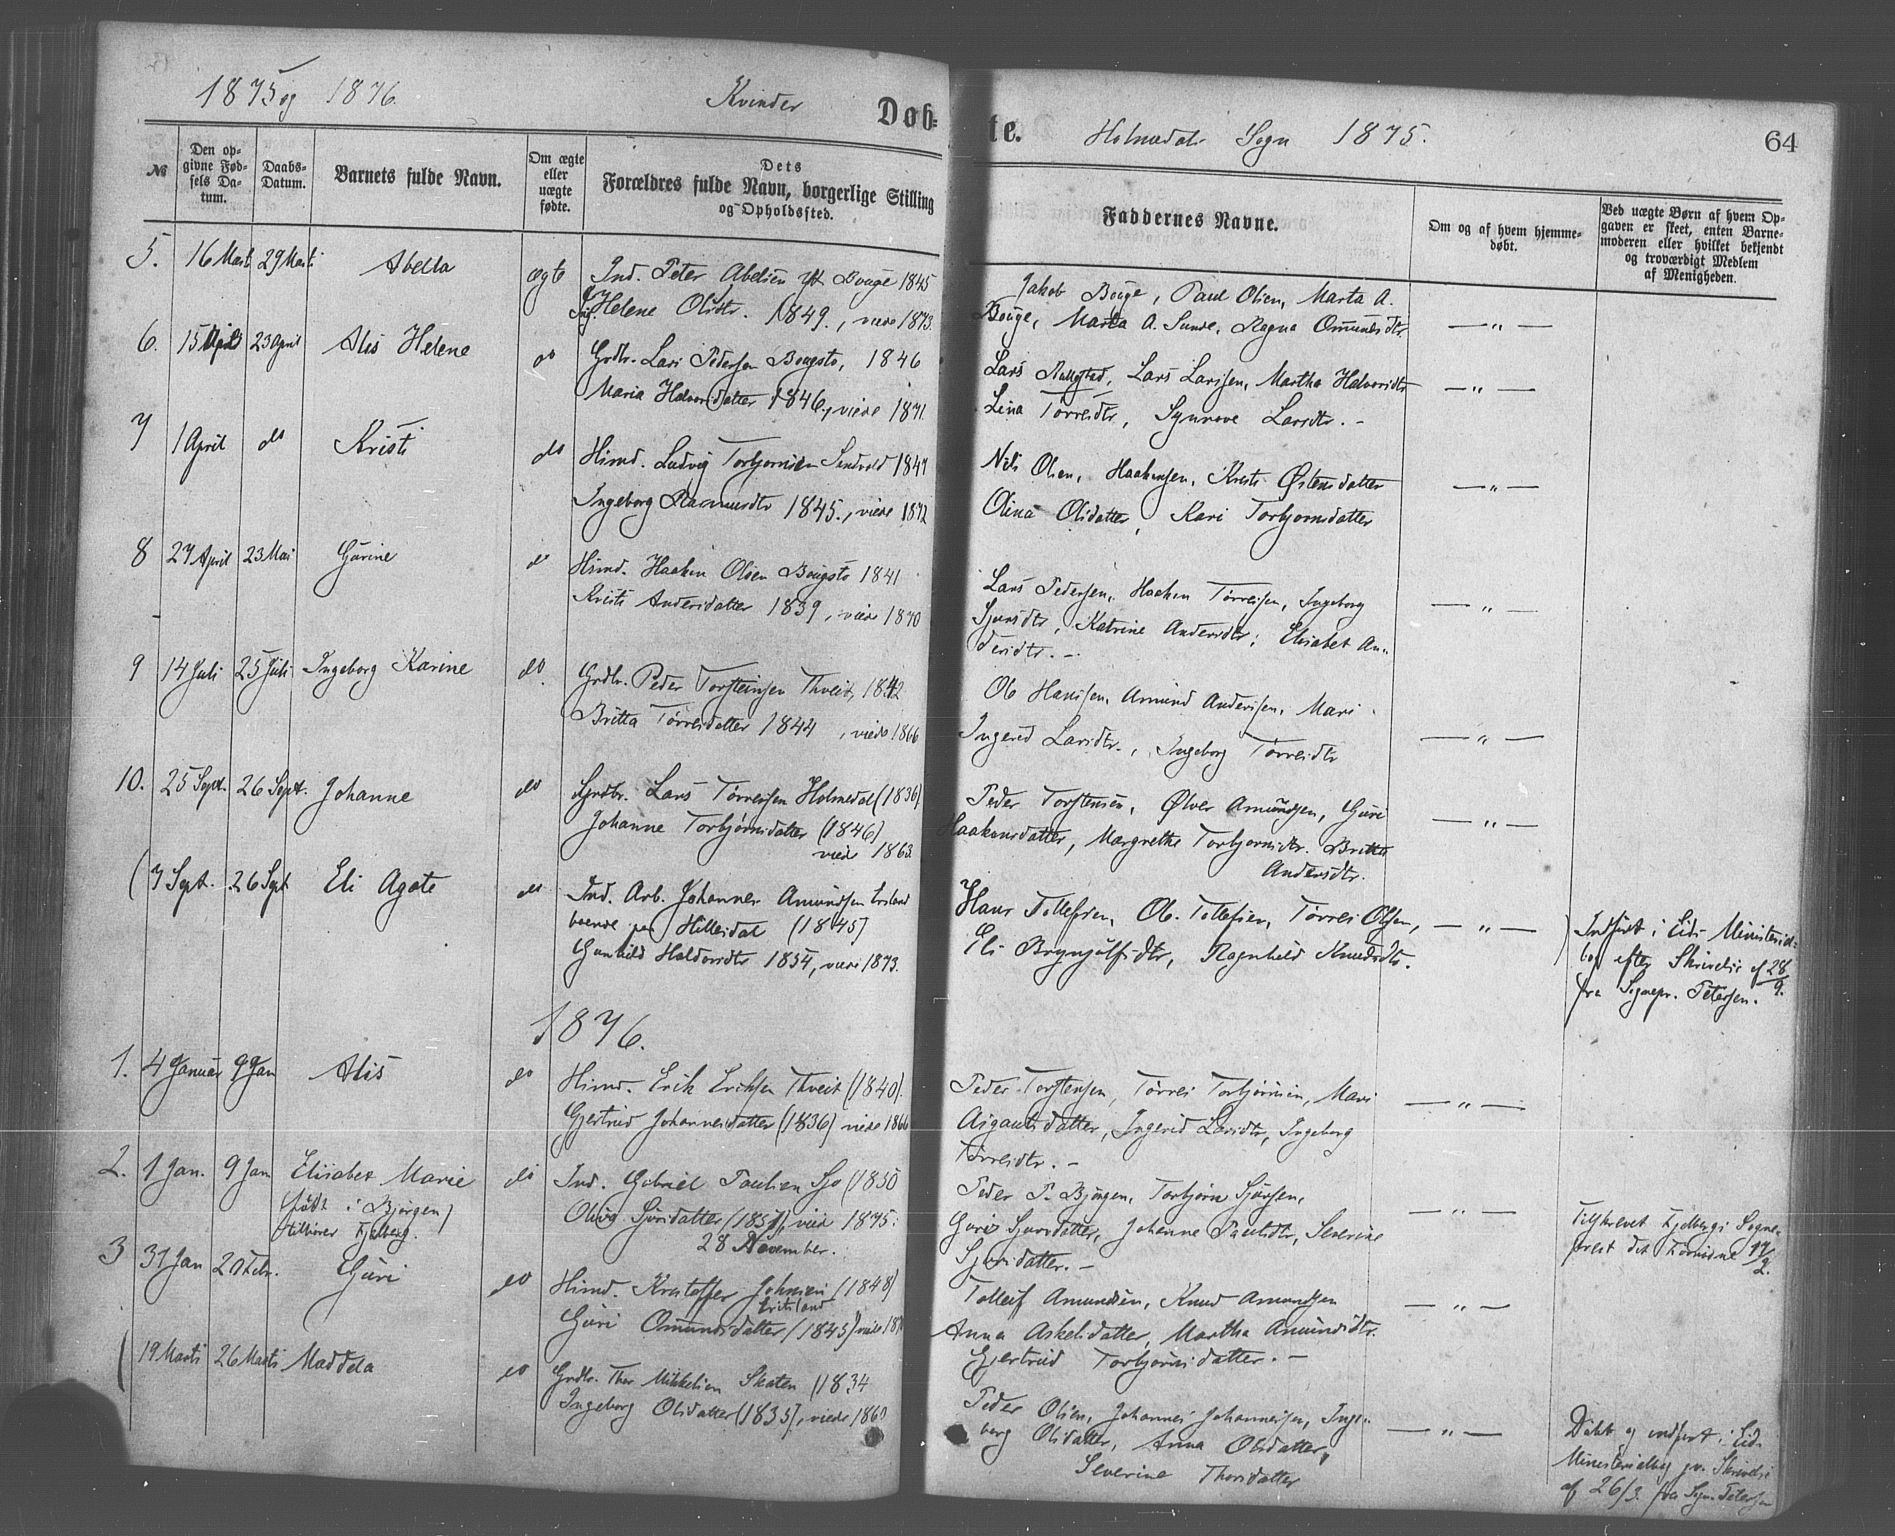 1875 og 1876.
Kvinder
Døb-
№
Den op-
givne Fød-
sels Da-
tum.
Daabs-
Datum.
Barnets fulde Navn.
Om ægte
eller
uægte
fødte.
Dets
Forældres fulde Navn, borgerlige Stilling
og Opholdssted.
5. 16 Marts 29 Marts Abella ægte Ind. Peter Abelsen Bouge 1845
Helene Olsdtr. 1849., viede 1873.
6. 15 April 23 April Alis Helene do Grdbr. Lars Pedersen Bougstø, 1846
Maria Halvorsdatter 1846., viede 1871
7 1 April do Kristi do Hsmd. Ludvig Torbjørnsen 1847
Ingeborg Rasmusdtr 1845., viede 1872
8 27 April 23 Mai Gurine do Hsmd. Haaken Olsen Bougstø 1841
Kristi Andersdatter 1839, viede 1870
9 14 Juli 25 Juli Ingeborg Karine do. Grdbr. Peder Torsteinsen Thveit, 1842
Britta Tørresdatter 1844, viede 1866
10. 25 Sept. 26 Sept. Johanne do Grdbr. Lars Tørresen Holmedal (1836)
Johanne Torbjørnsdatter (1846)
viede 1863
( 7 Sept. 26 Sept Eli Agate do Ind. Arb. Johannes Amundsen
boende paa Hillesdal (1845)
Gunhild Haldorsdtr 1854, viede 1873.
1876.
1. 4 Januar 9 Jan Alis do Hsmd. Erik Eriksen Thveit (1840).
Gjertrud Johannesdatter (1836) viede 1866
2. 1 Jan. 9 Jan Elisabet Marie do Ind. Gabriel Paulsen Sjo (1850
(født i Bjørgen) Oliva Sjursdatter (1851), viede 1875.
tilhører Fjelberg. 28 November.
3 31 Jan 20 Febr. Guri do Hsmd. Kristoffer Johnsen (1848)
Guri Omundsdatter (1845) viede
( 19 Marts 26 Marts Maddela do Grdbr. Thor Mikkelsen Skaten (1834
Ingeborg Olsdatter (1835), viede 1860
te.
Holmedals Sogn 1875.
64
Faddernes Navne.
Om og af hvem hjemme-
døbt.
Ved uægte Børn af hvem Op-
gaven er skeet, enten Barne-
moderen eller hvilket bekjendt
og troværdigt Medlem
af Menigheden.
Jakob Bouge, Paul Olsen, Marta A.
Bouge, Marta A. Sunde, Ragna Omundsdtr. — " —
Lars, Lars Larssen, Martha Halvorsdtr — " —
Lina Tørresdtr, Synnove Larsdtr. -
Nils Olsen, Haakensen, Kristi Østensdatter — " —
Olina Olsdatter, Kari Torbjørnsdatter
Lars Pedersen, Haaken Tørresen, Ingeborg — " —
Sjursdtr, Katrine Andersdtr, Elisabet An-
dersdtr. -
Ole Hanssen, Amund Andersen, Mari
Ingerid Larsdtr., Ingeborg Tørresdtr — " —
Peder Torstensen, Ølver Amundsen, Guri — " —
Haakensdatter, Margrethe Torbjørnsdtr. Britta
Andersdtr.
Hans Tollefsen, Ole Tollefsen, Tørres Olsen, — " — Indført i Eids Ministerial-
Eli Brynjulfsdtr, Ragnhild Knudsdtr. bog efter Skrivelse af 28/9.
fra Sognepr. Petersen.
Peder Torstensen, Tørres Torbjørnsen, Mari — " —
Asgautsdatter, Ingerid Larsdtr, Ingeborg
Tørresdtr. -
Peder P. Bjørgen, Torbjørn Sjursen, — " — Tilskrevet Fjelbergs Sogne-
Guri Sjursdatter, Johanne Paulsdtr, Severine prest det Fornødne 17/2.
Sjursdatter. -
Tollef Amundsen, Knud Amundsen — " —
Anna Askelsdatter, Martha Amundsdtr.
Gjertrud Torbjørnsdatter. -
Peder Olsen, Johannes Johannessen, Inge- — " — Døbt og indført i Eids
borg Olsdatter, Anna Olsdatter, Ministerialbog pr. Skrivelse
Severine Thorsdatter af 26/3. fra Sogn. Petersen